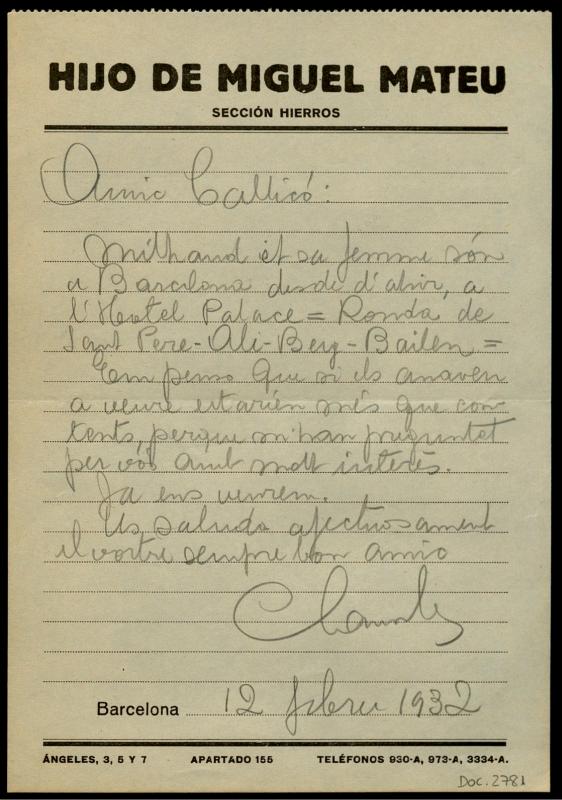 HIJO DE MIGUEL MATEU
SECCIÓN HIERROS
Amic Callicó:
Milhaud et sa femme són
a Barcelona desde d'ahir, a
l'Hotel Palace = Ronda de
Sant Pere - Ali-Bey - Bailen =
Em penso que si els anaven
a veure estarien més que con-
tents, perque m'han preguntat
per vós amb molt interés.
Ja ens veurem.
Us saluda afectuosament
el vostre sempre bon amic
Barcelona 12 febrer 1932
ÁNGELES, 3, 5 Y 7 APARTADO 155 TELÉFONOS 930-A, 973-A, 3334-A.
Doc. 2781